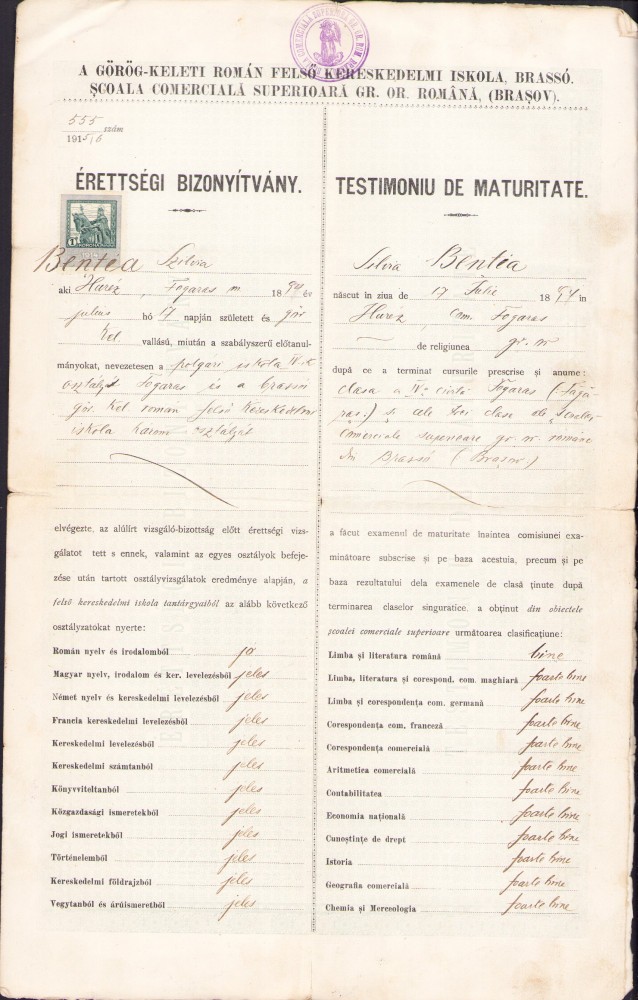 A GÖRÖG-KELETI ROMÁN FELSŐ KERESKEDELMI ISKOLA, BRASSÓ.
ȘCOALA COMERCIALĂ SUPERIOARĂ GR. OR. ROMÂNĂ, (BRAȘOV).
555 szám
1915/6
ÉRETTSÉGI BIZONYÍTVÁNY.
1914
KORONA
Bentea Szilvia
aki Haréz, Fogaras m 1894 év
julius hó 17 napján született és gör.
kel. vallású, miután a szabályszerű előtanul-
mányokat, nevezetesen a polgári iskola IV.
osztályt Fogaras és a brassói
gör. kel. román felső kereskedelmi
iskola három osztályát
elvégezte, az alúlírt vizsgáló-bizottság előtt érettségi vizs-
gálatot tett s ennek, valamint az egyes osztályok befeje-
zése után tartott osztályvizsgálatok eredménye alapján, a
felső kereskedelmi iskola tantárgyaiból az alább következő
osztályzatokat nyerte:
Román nyelv és irodalomból jó
Magyar nyelv, irodalom és ker. levelezésből jeles
Német nyelv és kereskedelmi levelezésből jeles
Francia kereskedelmi levelezésből jeles
Kereskedelmi levelezésből jeles
Kereskedelmi számtanból jeles
Könyvviteltanból jeles
Közgazdasági ismeretekből jeles
Jogi ismeretekből jeles
Történelemből jeles
Kereskedelmi földrajzból jeles
Vegytanból és árúismeretből jeles
TESTIMONIU DE MATURITATE.
Silvia Bentea
născut in ziua de 17 Iulie 1894 in
Haréz, com. Fogaras
de religiunea gr. or
după ce a terminat cursurile prescrise și anume:
clasa a IV civilă Fogaras (Făgă
raș.) și cele trei clase ale Școalei
comerciale superioare gr. or. române
din Brassó (Brașov.)
a făcut examenul de maturitate înaintea comisiunei exa-
minătoare subscrise și pe baza acestuia, precum și pe
baza rezultatului dela examenele de clasă ținute după
terminarea claselor singuratice, a obținut din obiectele
școalei comerciale superioare următoarea clasificațiune:
Limba și literatura română bine
Limba, literatura și corespond. com. maghiară foarte bine
Limba și corespondența com. germană foarte bine
Corespondența com. franceză foarte bine
Corespondența comercială foarte bine
Aritmetica comercială foarte bine
Contabilitatea foarte bine
Economia națională foarte bine
Cunoștințe de drept foarte bine
Istoria foarte bine
Geografia comercială foarte bine
Chemia și Merceologia foarte bine